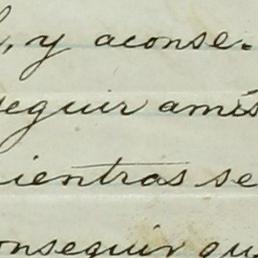 , y aconse-
seguir amis
mientras se
conseguir qu